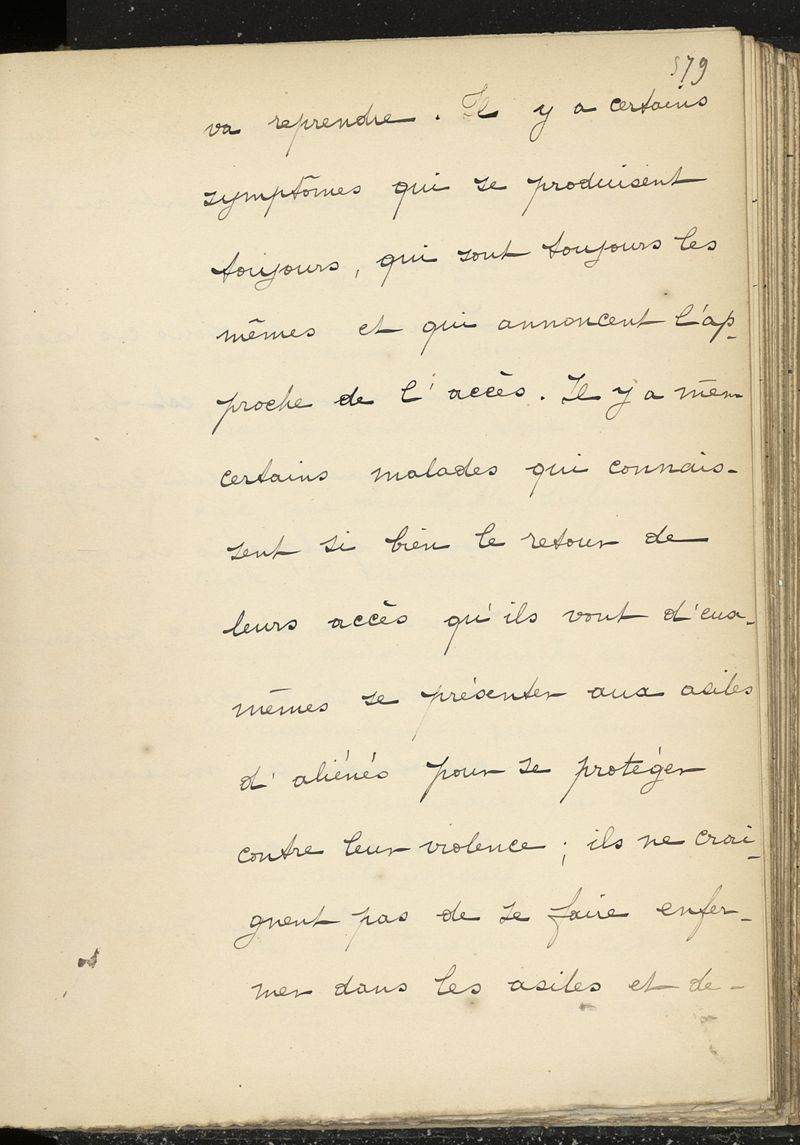 579
va reprendre. Il y a certains
symptômes qui se produisent
toujours, qui sont toujours les
mêmes et qui annoncent l'ap-
proche de l'accès. Il y a mêm
certains malades qui connais-
sent si bien le retour de
leurs accès qu'ils vont d'eux-
mêmes se présenter aux asiles
d'aliénés pour se protéger
contre leur violence ; ils ne crai-
gnent pas de se faire enfer-
mer dans les asiles et de-